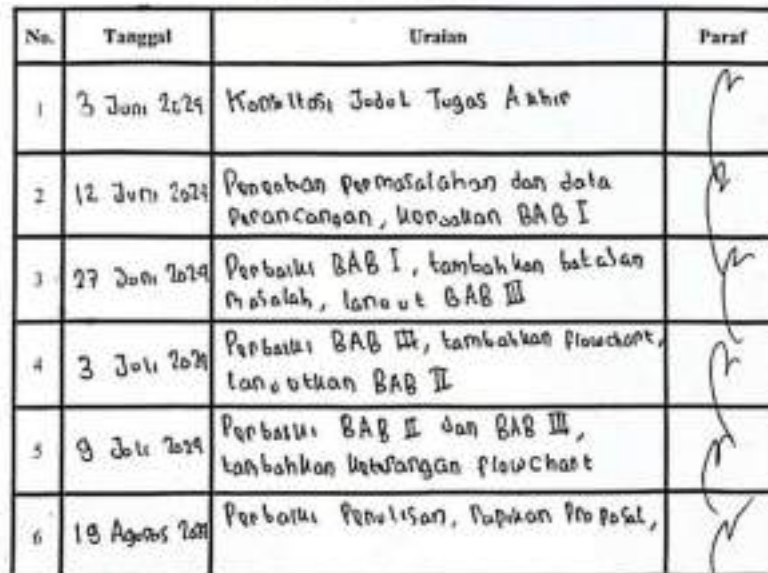 No. Tanggal Uraian Paraf
1 3 Juni 2024 Konsultasi Judul Tugas Akhir
2 12 Juni 2024 Pencatian permasalahan dan data
perancangan, kerjakan BAB I
3 27 Juni 2024 Perbaiki BAB I, tambahkan batasan
masalah, lanjut BAB III
4 3 Juli 2024 Perbaiki BAB III, tambahkan flowchart,
lanjutkan BAB II
5 9 Juli 2024 Perbaiki BAB II dan BAB III,
tambahkan keterangan flowchart
6 19 Agustus Perbaiki Penulisan, Rapikan Proposal,